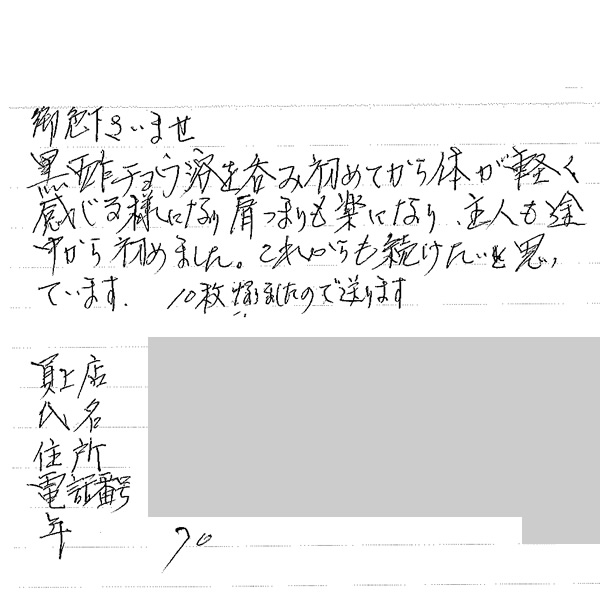 御免下さいませ
黒酢チョウ溶を呑み初めてから体が軽く
感じる様になり肩つまりも楽になり、主人も途
中から初めました。これからも続けたいと思っ
ています。 10枚たまりましたので送ります
買上店
氏名
住所
電話番号
年 70